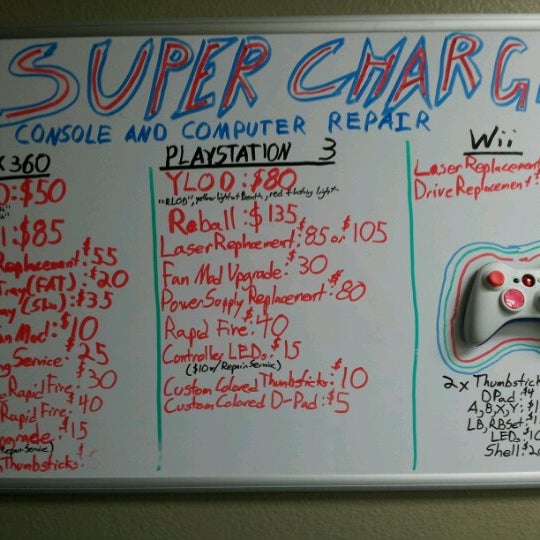 SUPER CHARG
CONSOLE AND COMPUTER REPAIR
X360
:$50
:$85
Replacement:$55
Tray(FAT):$20
(Slim):$35
Fan Mod:$10
Service:$25
Rapid Fire:$30
Rapid Fire:$40
:$15
Repair Service)
Thumbsticks:
PLAYSTATION 3
YLOD:$80
Reball:$135
Laser Replacement:$85 or $105
Fan Mod Upgrade:$30
Power Supply Replacement:$80
Rapid Fire:$40
Controller LEDs:$15
($10 w/ Repair Service)
Custom Colored Thumbsticks:$10
Custom Colored D-Pad:$5
Wii
Laser Replacement
Drive Replacement:
2x Thumbstick
DPad:$4
A,B,X,Y:$1
LB,RB Set:$1
LEDs:$10
Shell:$20